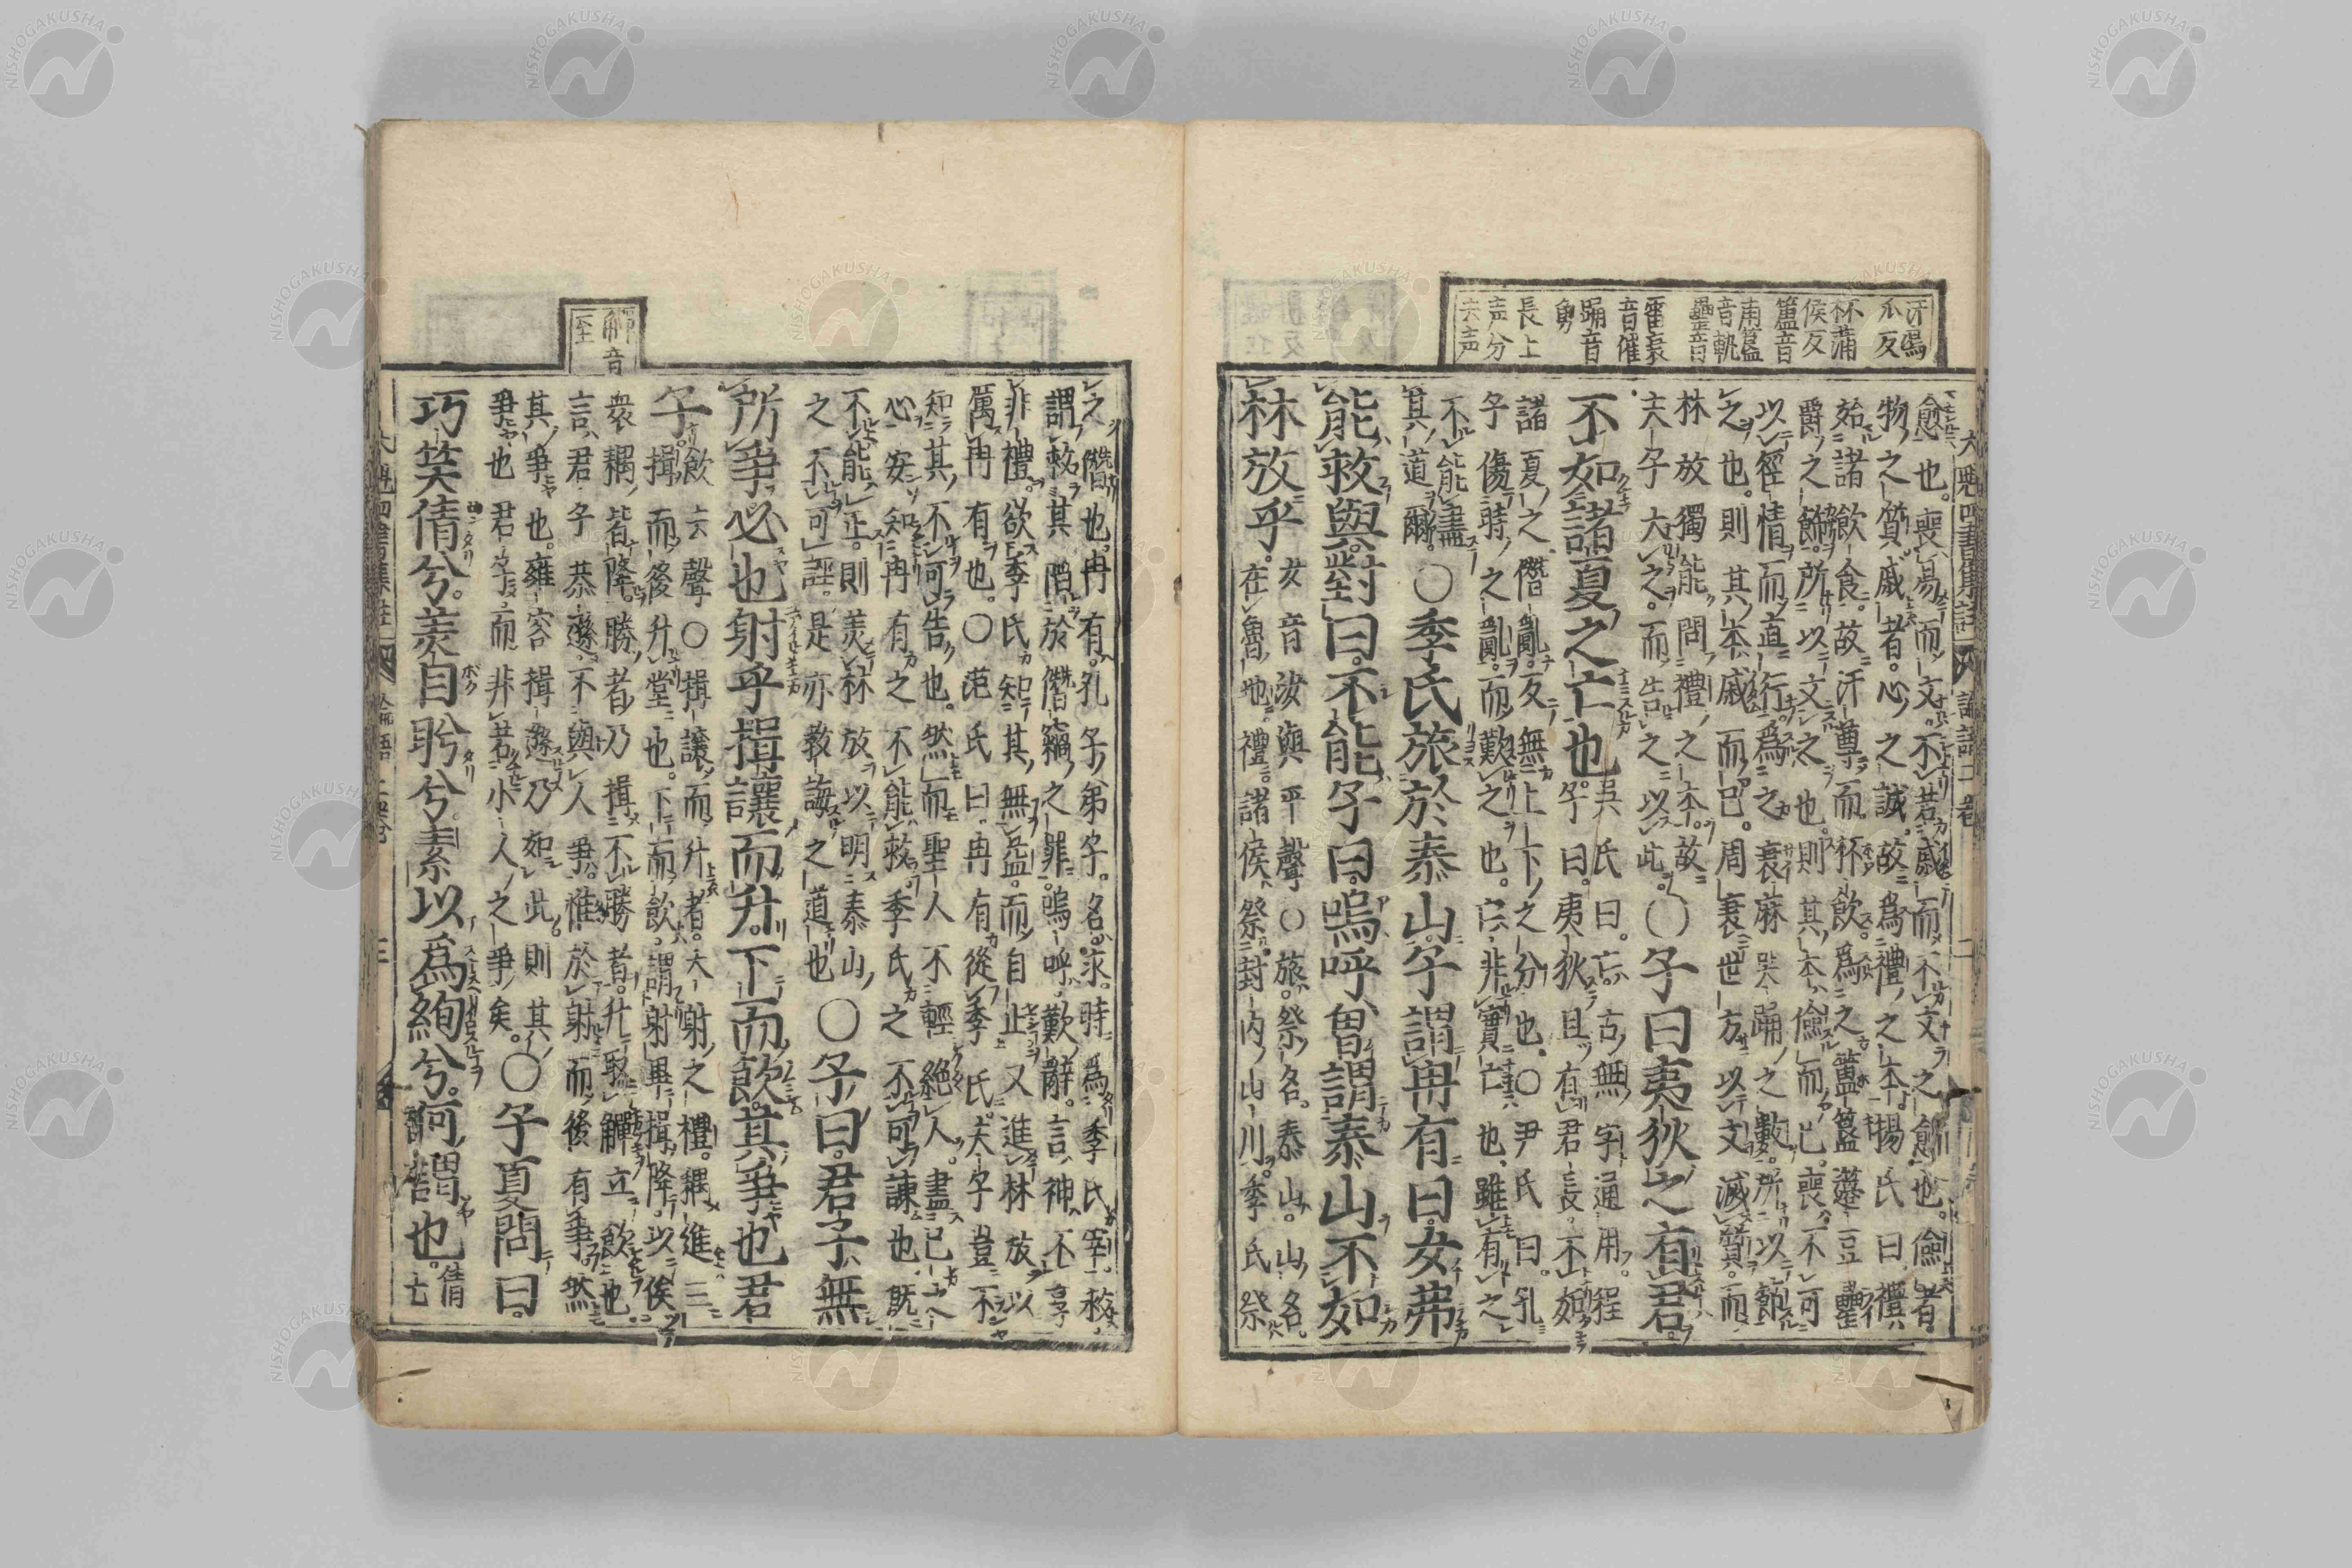 汙烏
瓜反
杯蒲
侯反
簠音
甫簋
音軌
罍音
雷衰
音催
踊音
勇
長上
声分
去声
愈也。喪易而文。不若戚而不文之愈也。儉者。
物之質戚者。心之誠。故爲禮之本。楊氏曰禮
始諸飮食。故汙尊而杯飮。爲之簠簋籩豆罍
爵之飾。所以文之也。則其本儉而已。喪不可
以徑情而直行。爲之衰麻哭踊之數。所以節
之也。則其本戚而已。周衰世方以文滅質。而
林放獨能問禮之本。故
夫子大之。而告之以此。
○子曰夷狄之有君。
不如諸夏之亡也。
吳氏曰。亡古無字通用。程
子曰。夷狄且有君長。不如
諸夏之僭亂。反無上下之分也。○尹氏曰。孔
子傷時之亂。而歎之也。亡非實亡也。雖有之
不能盡
其道爾。
○季氏旅於泰山。子謂冉有曰。女弗
能救與。對曰。不能。子曰。嗚呼曾謂泰山不如
林放乎。
女音汝與平聲○旅祭名。泰山。山名。
在魯地。禮。諸侯祭封内山川。季氏祭
大魁四書集註
論語二卷
二
觶音
至
之僭也。冉有。孔子弟子。名求。時爲季氏宰。救
謂救其陷於僭竊之罪。嗚呼。歎辭。言神不享
非禮。欲季氏知其無益。而自止。又進林放以
厲冉有也。○范氏曰。冉有從季氏。夫子豈不
知其不可告也。然而聖人不輕絶人。盡己
心安知冉有之不能救季氏之不可諫也。既
不能正。則美林放以明泰山
之不可誣。是亦教誨之道也
○子曰。君子無
所爭必也射乎揖讓而升。下而飮。其爭也君
子
飮去聲○揖讓而升者。大射之禮。耦進三
揖而後升堂也。下而飮。謂射畢揖降。以俟
衆耦皆降。勝者乃揖不勝者。升取觶立飮也。
言君子恭遜不與人爭。惟於射而後有爭。然
其爭也。雍容揖遜乃如此。則其
爭也君子。而非若小人之爭矣。
○子夏問曰。
巧笑倩兮。美目盼兮。素以爲絢兮。何謂也。
倩
七